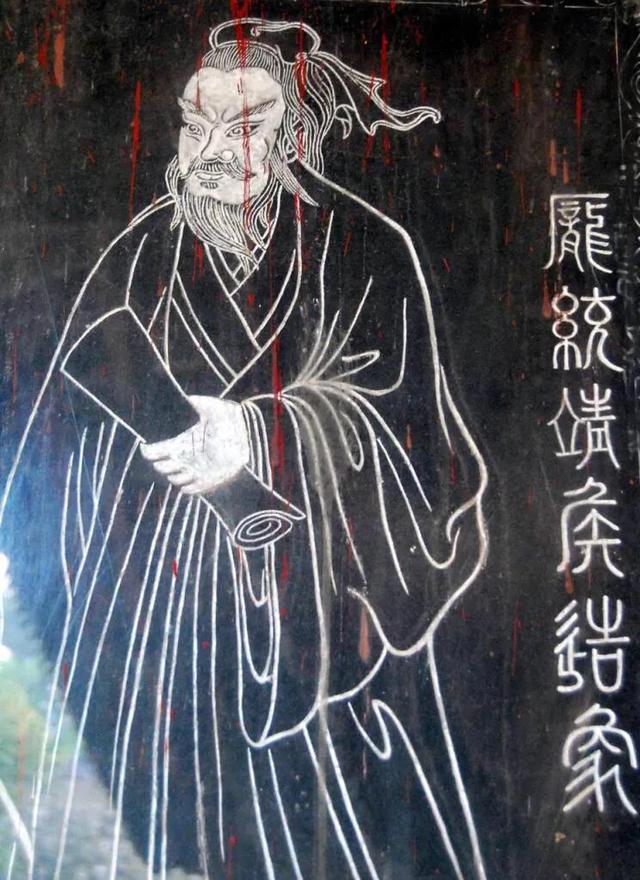 龐統靖侯造象